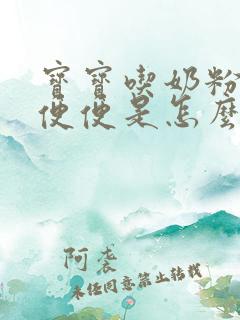 寶寶喫奶粉
便便是怎麼
阿袭
未经同意禁止转载